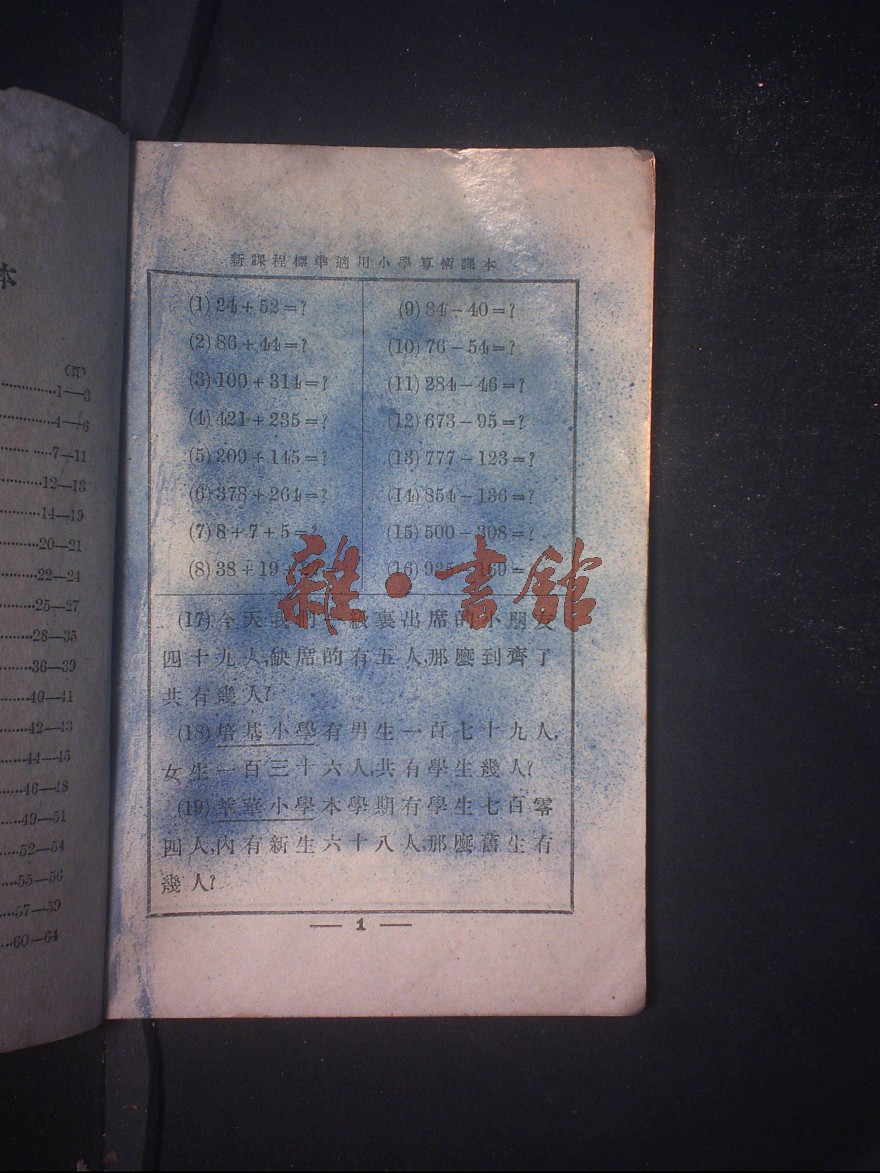 本
(頁)
1—3
4—6
7—11
12—13
14—19
20—21
22—24
25—27
28—35
36—39
40—41
42—43
44—45
46—48
49—51
52—54
55—56
57—59
60—64
新課程標準適用小學算術課本
(1) 24+52=?
(2) 86+44=?
(3) 100+314=?
(4) 421+235=?
(5) 209+145=?
(6) 378+264=?
(7) 8+7+5=?
(8) 38+19+
(9) 84-40=?
(10) 76-54=?
(11) 284-46=?
(12) 673-95=?
(13) 777-123=?
(14) 854-136=?
(15) 500-308=?
(16) 925-169=
(17) 今天我們一級裏出席的小朋友
四十九人,缺席的有五人,那麼到齊了
共有幾人?
(18) 培基小學有男生一百七十九人,
女生一百三十六人,共有學生幾人?
(19) 萃華小學本學期有學生七百零
四人,內有新生六十八人,那麼舊生有
幾人?
— 1 —
雜·書館